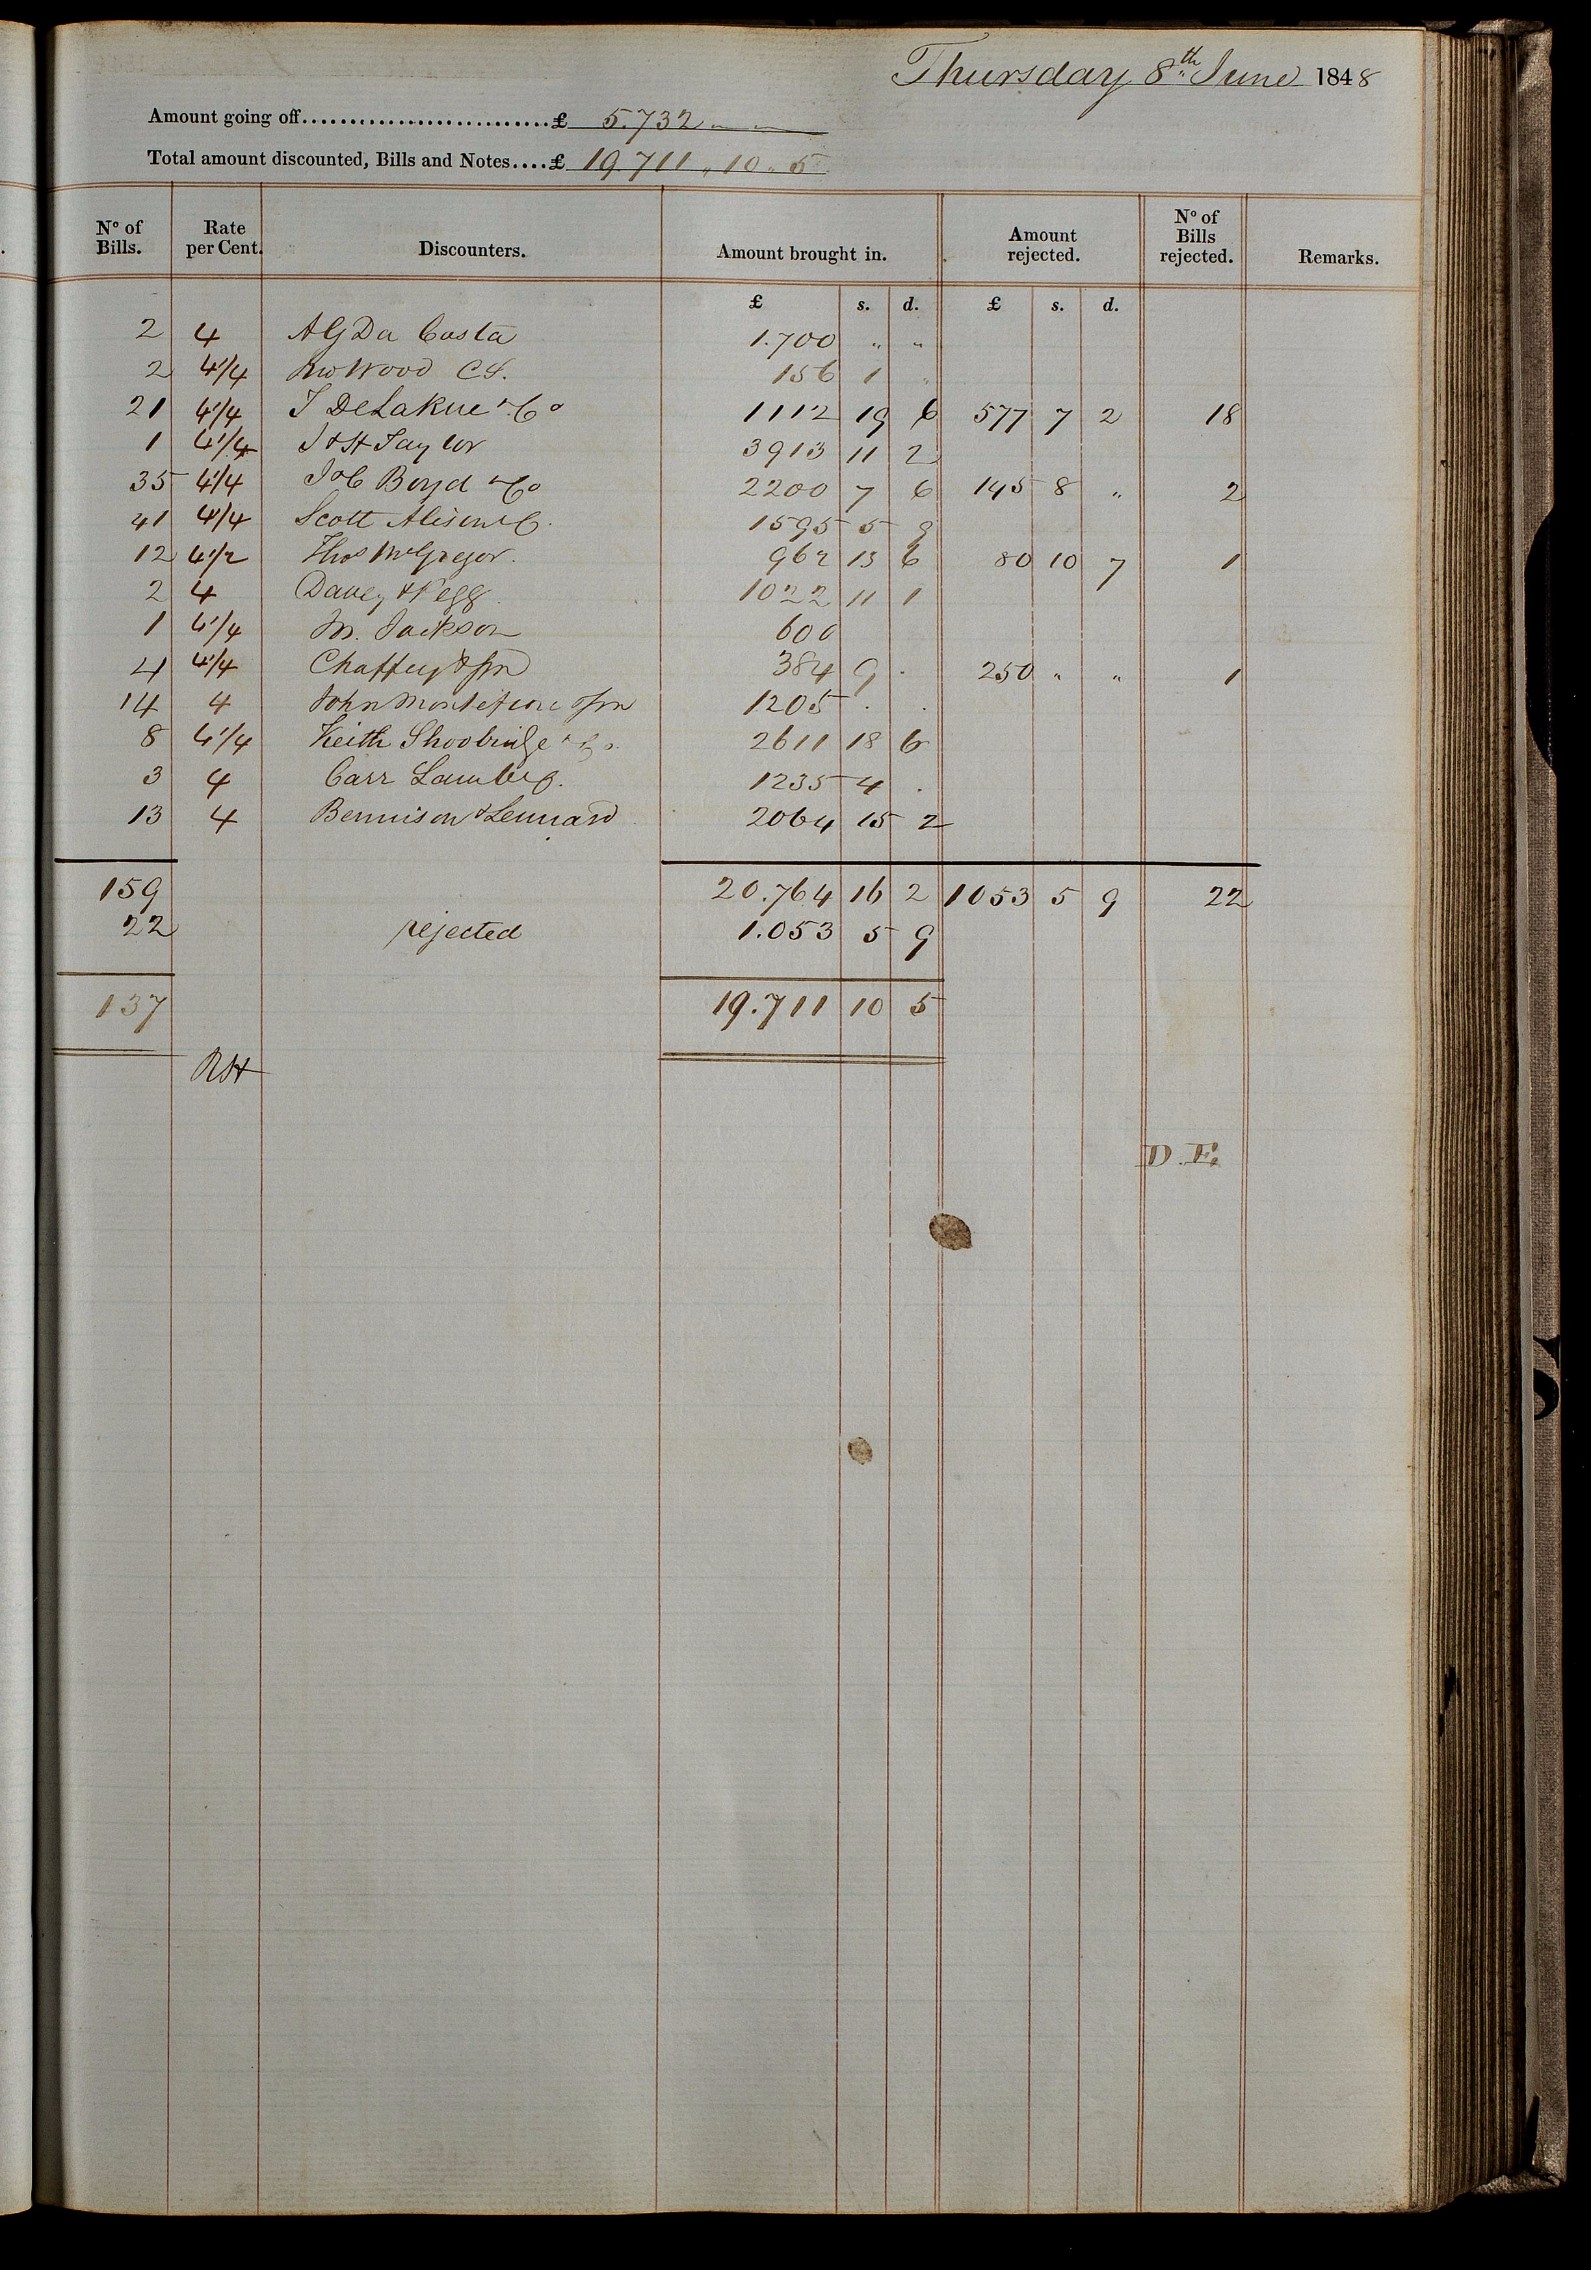 Thursday 8th June 1848
Amount going off...........................£ 5.732 " "
Total amount discounted, Bills and Notes....£ 19.711 " 10 " 5
No of Bills. Rate per Cent. Discounters. Amount brought in. Amount rejected. No of Bills rejected. Remarks.
£ s. d. £ s. d.
2 4 A G Da Costa 1.700 " "
2 4 1/4 Wood 156 1 "
21 4 1/4 T De La Rue & Co 1112 19 6 577 7 2 18
1 4 1/4 J & H Taylor 3913 11 2
35 4 1/4 J & C Boyd & Co 2200 7 6 145 8 " 2
41 4 1/4 Scott Alison & C. 1595 5 9
12 4 1/2 Thos McGregor. 962 13 6 80 10 7 1
2 4 Davey & Pegg. 1022 11 1
1 4 1/4 M. Jackson 600
4 4 1/4 Chaffey & Son 384 9 . 250 " " 1
14 4 John Montefiore & Son 1205 . .
8 4 1/4 Keith Shoobridge & Co. 2611 18 6
3 4 Carr Lamb & C. 1235 4 .
13 4 Bennison & Lennard 2064 15 2
159 20.764 16 2 1053 5 9 22
22 rejected 1.053 5 9
137 19.711 10 5
RH
D.E.